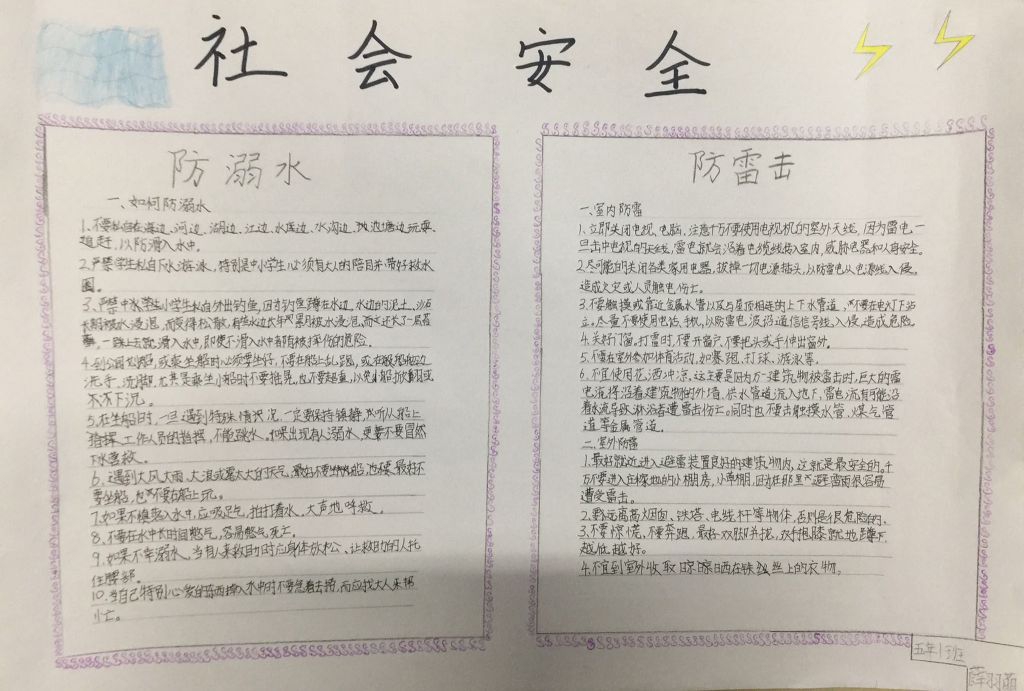 社会安全
防溺水
一、如何防溺水
1、不要私自在海边、河边、湖边、江边、水库边、水沟边、池塘边玩耍、
追赶,以防滑入水中。
2.严禁学生私自下水游泳,特别是中小学生必须有大人的陪同并带好救水
圈。
3、严禁中小学生私自外出钓鱼,因为钓鱼蹲在水边,水边的泥土、沙石
长期被水浸泡,而变得松散,有些水边长年累月被水浸泡,而还长了一层苔
藓,一踩上去就滑入水中,即使不滑入水中都有被摔伤的危险。
4.到公园划船,或乘坐船时必须要坐好,不要在船上乱跑,或在船舷边
洗手、洗脚,尤其是乘坐小船时不要摇晃,也不要超重,以免小船掀翻或
下沉。
5.在坐船时,一旦遇到特殊情况,一定要保持镇静,听从船上
指挥、工作人员的指挥,不能跳水。如果出现有人溺水,更要不要冒然
下水急救。
6、遇到大风大雨、大浪或雾太大的天气,最好不要坐船,最好不
要坐船,也不要在船上玩。
7.如果不慎落入水中,应吸足气,拍打着水,大声地呼救。
8、不要在水中长时间憋气,容易憋气死亡。
9、如果不幸溺水,当有人来救助时应身体放松、让救助的人托
住腰部。
10.当自己特别心爱的东西掉入水中时不要急着去捞,而应找大人来帮
忙。
防雷击
一、室内防雷
1、立即关闭电视、电脑,注意千万不要使用电视机的室外天线,因为雷电一
旦击中电视的天线,雷电就会沿着电缆线传入室内,威胁电器和人身安全。
2.尽可能的关闭各类家用电器,拔掉一切电源插头,以防雷电从电源线入侵,
造成火灾或人员触电伤亡。
3.不要触摸或靠近金属水管以及与屋顶相连的上下水管道,不要在电灯下站
立。尽量不要使用电话、手机,以防雷电波沿通信信号线入侵,造成危险。
4.关好门窗,打雷时,不要开窗户,不要把头或手伸出窗外。
5.不要在室外参加体育活动,如赛跑、打球、游泳等。
6.不宜使用花洒冲凉,这主要是因为万一建筑物被雷击时,巨大的雷
电流将沿着建筑物的外墙、供水管道流入地下,雷电流有可能沿
着水流导致淋浴者遭雷击伤亡。同时也不要去触摸水管、煤气管
道等金属管道。
二、室外防雷
1.最好就近进入避雷装置良好的建筑物内,这就是最安全的。千
万不要进入庄稼地的小棚房,小草棚,因为在那里避雷雨很容易
遭受雷击。
2.要远离高大烟囱、铁塔、电线杆等物体,否则是很危险的。
3.不要惊慌,不要奔跑,最好双脚并拢,双手抱膝就地蹲下,
越低越好。
4.不宜到室外收取晾晒在铁丝上的衣物。
五年1班
薛羽菡